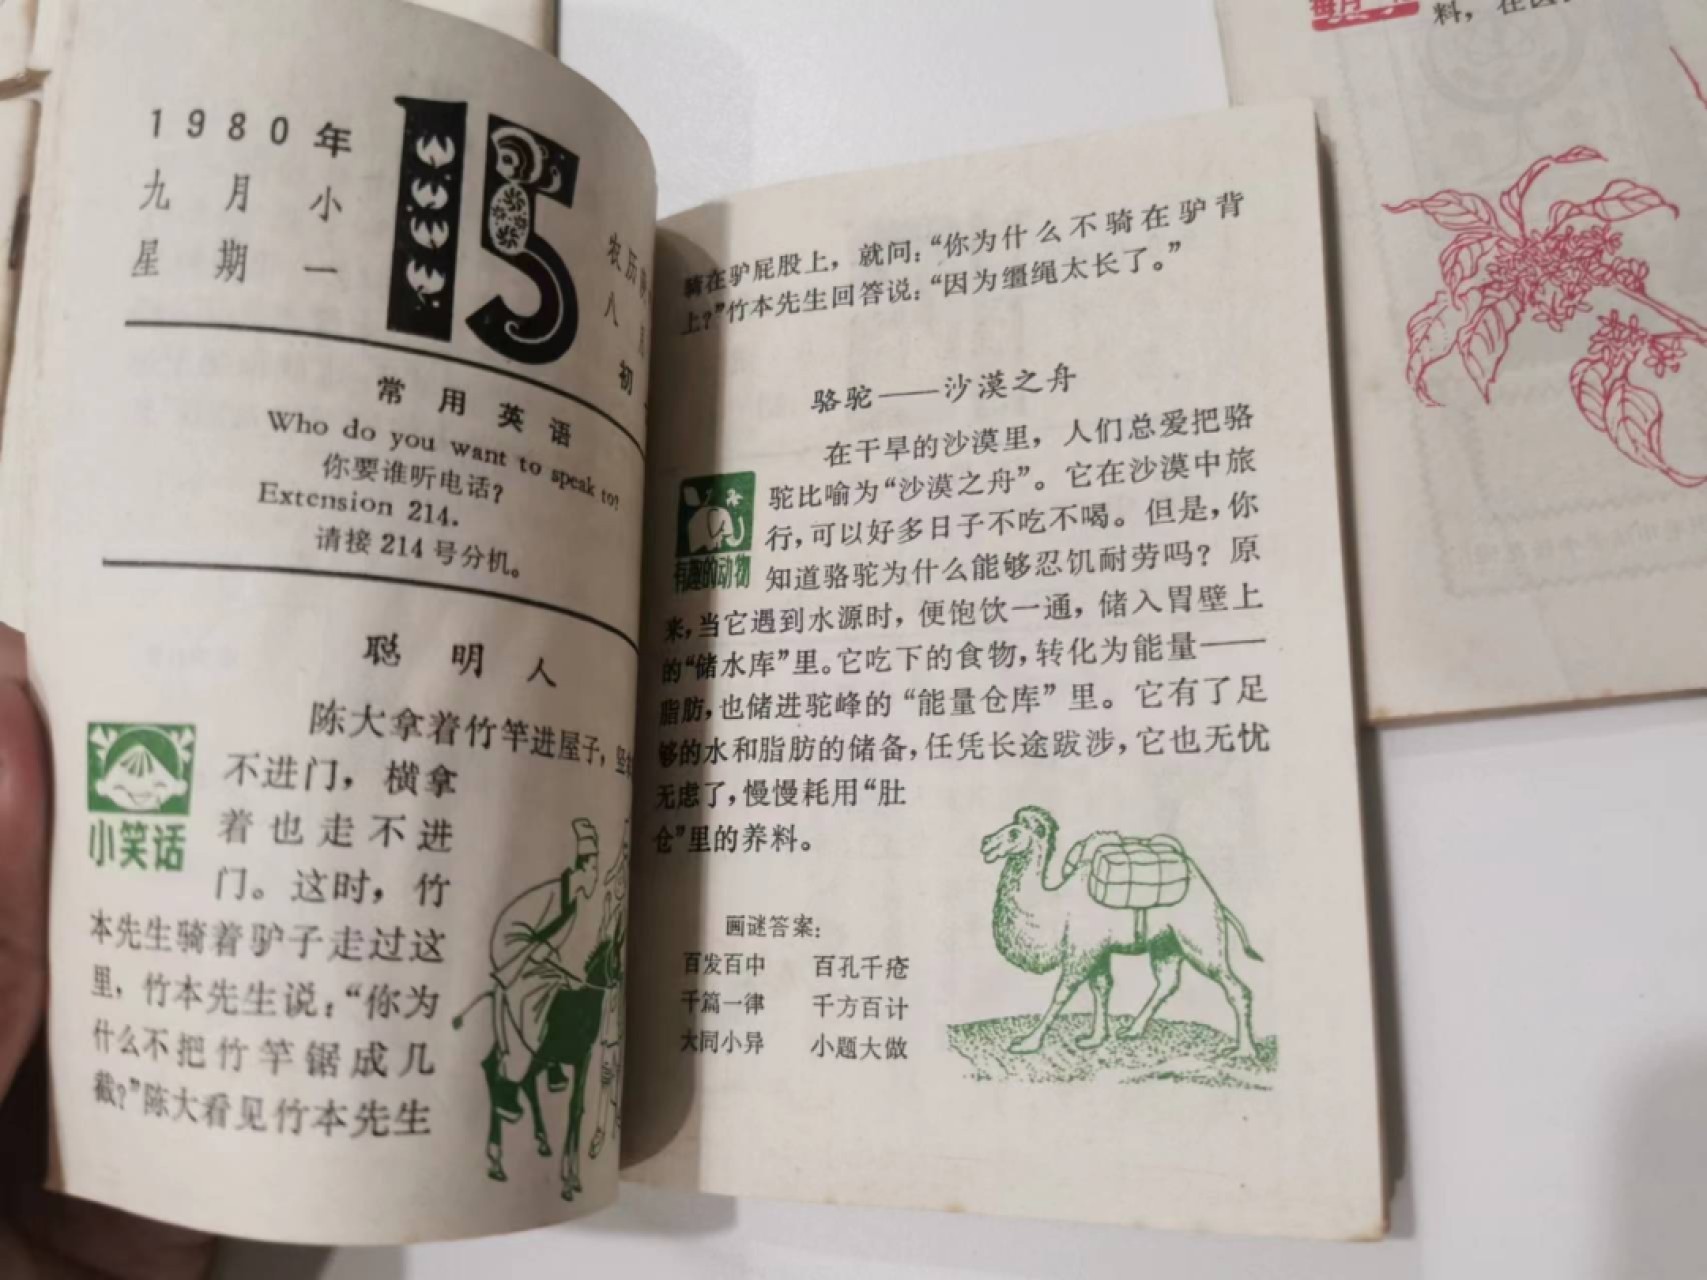 1980年
九月小
星期一
15
农历
八
初
常用英语
Who do you want to speak to?
你要谁听电话?
Extension 214.
请接 214 号分机。
聪明人
小笑话
陈大拿着竹竿进屋子,
不进门,横拿
着也走不进
门。这时,竹
本先生骑着驴子走过这
里,竹本先生说:“你为
什么不把竹竿锯成几
截?”陈大看见竹本先生
骑在驴屁股上,就问:“你为什么不骑在驴背
上?”竹本先生回答说:“因为缰绳太长了。”
骆驼——沙漠之舟
有趣的动物
在干旱的沙漠里,人们总爱把骆
驼比喻为“沙漠之舟”。它在沙漠中旅
行,可以好多日子不吃不喝。但是,你
知道骆驼为什么能够忍饥耐劳吗?原
来,当它遇到水源时,便饱饮一通,储入胃壁上
的“储水库”里。它吃下的食物,转化为能量——
脂肪,也储进驼峰的“能量仓库”里。它有了足
够的水和脂肪的储备,任凭长途跋涉,它也无忧
无虑了,慢慢耗用“肚
仓”里的养料。
画谜答案:
百发百中 百孔千疮
千篇一律 千方百计
大同小异 小题大做
每月一
料,在